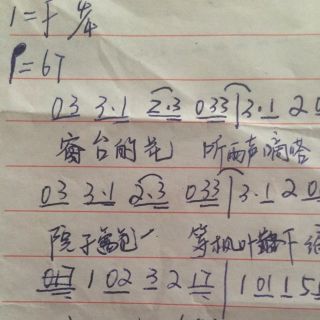 1=F 4/4
P=67
03 3·1 2·3 033 | 3·1 20
窗台的花 听雨声嘀嗒
03 3·1 2·3 033 | 3·1 20
院子 等枫叶 下
017 1 02 3 2 17 | 1 01 1 5